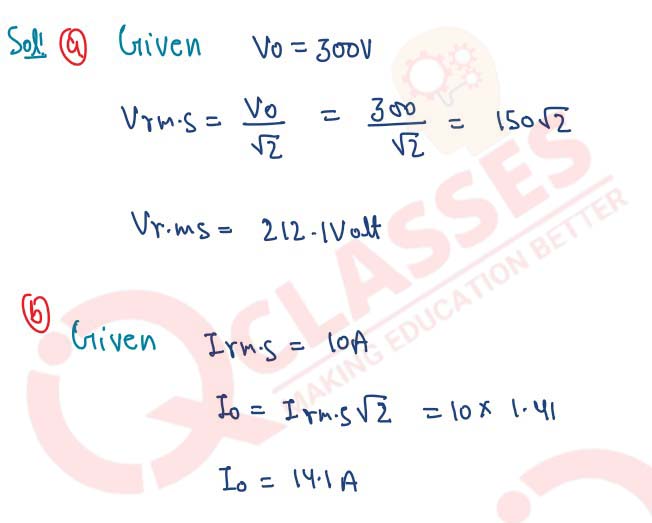 Sol! (a) Given V0 = 300V
Vrm.s = V0/√2 = 300/√2 = 150√2
Vr.ms = 212.1Volt
(b)
Given Irm.s = 10A
I0 = Irm.s√2 = 10 × 1.41
I0 = 14.1 A
IQ CLASSES
MAKING EDUCATION BETTER